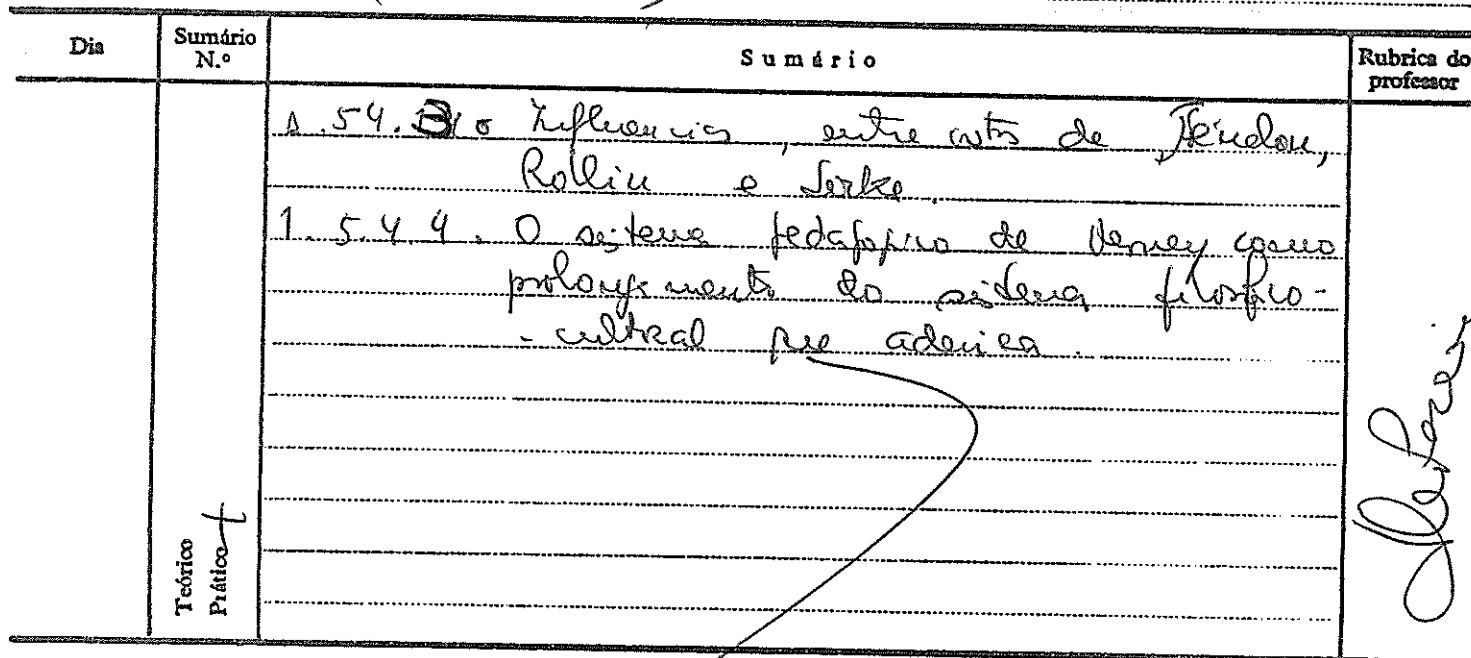 Dia
Sumário N.º
Sumário
Rubrica do professor
1.5.4.3. Influencias, entre outros de Fénelon,
Rollin e Locke
1.5.4.4. O sistema pedagógico de Verney como
prolongamento do sistema filosófico-
-cultural que aderira.
Teórico
Prático